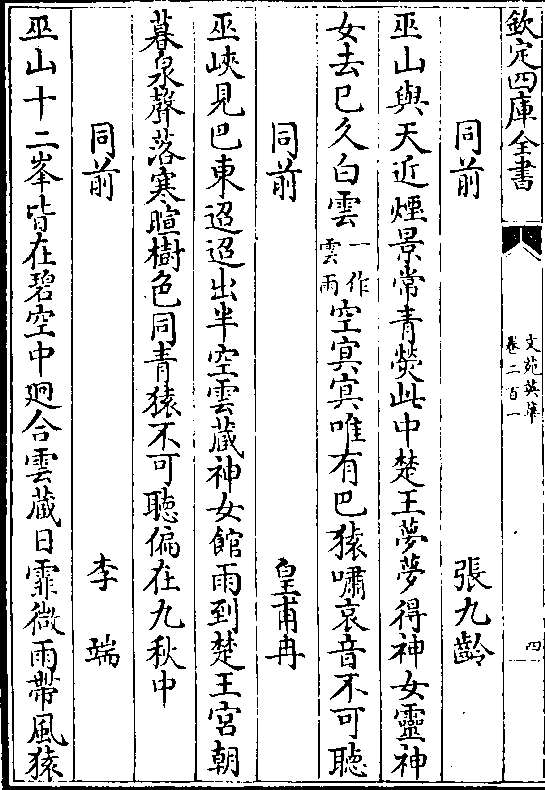 欽定四庫全書
文苑英華
卷二百一
四
同前
張九齡
巫山與天近煙景常青熒此中楚王夢夢得神女靈神
女去已久白雲一作雲雨空冥冥唯有巴猿嘯哀音不可聽
同前
皇甫冉
巫峽見巴東迢迢出半空雲藏神女館雨到楚王宮朝
暮泉聲落寒暄樹色同青猿不可聽偏在九秋中
同前
李端
巫山十二峯皆在碧空中廻合雲藏日霏微雨帶風猿